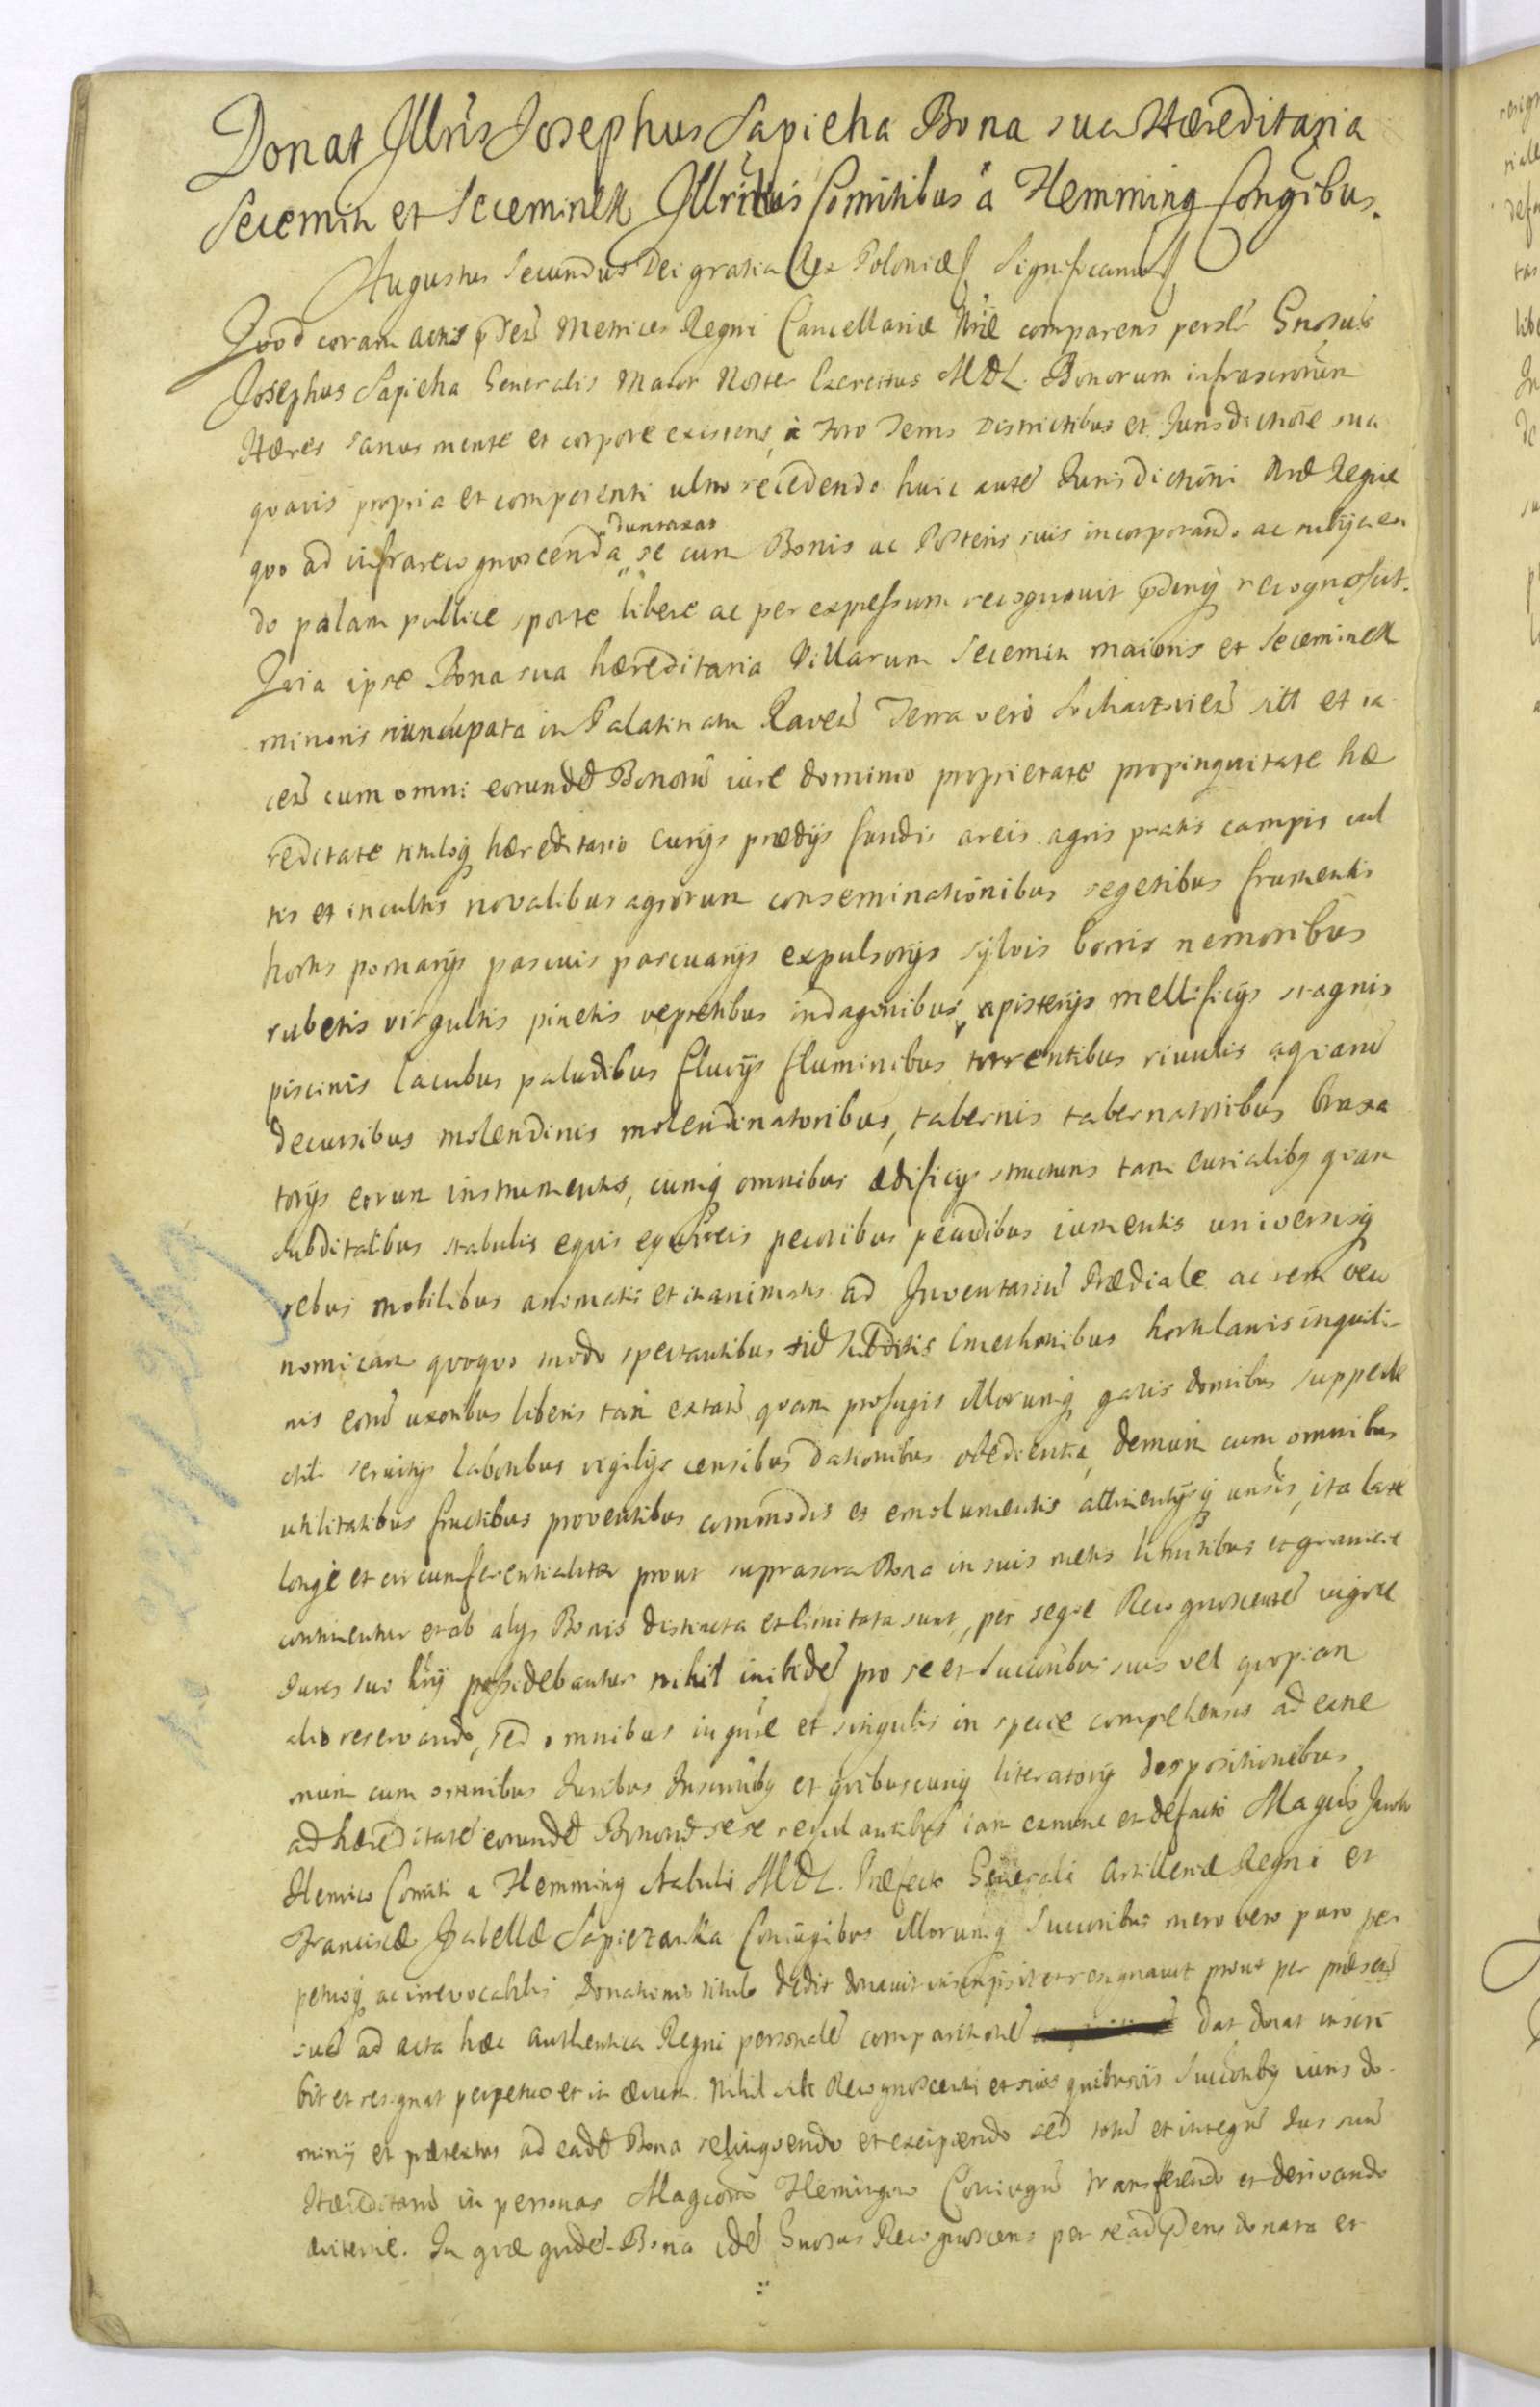 Donat Jllris Josephus Sapieha Bona sua Hæreditaria
Secemin et Seceminek Jllribus Comitibus à Flemming Congibus.
Augustus Secundus Dei gratia Rex Poloniæ Significamus
Quod coram actis pntibus Metrices Regni Cancellariæ Nræ comparens persolr Gnosus
Josephus Sapieha Generalis Maior Noster Exercitus MDL. Bonorum infrascrorum
Hæres sanus mente et corpore existens, à Foro Terris Districtibus et Jurisdictione sua
quavis propria et competenti ultro recedendo huic aute Jurisdictioni Nræ Regiæ
quo ad infrarecognoscenda duntaxat se cum Bonis ac Posteris suis incorporando ac subijcien
do palam publice sponte libere ac per expressum recognovit pntibusq recognoscit.
Quia ipse Bona sua hæreditaria Villarum Secemin maioris et Seceminek
minoris nuncupata in Palatinatu Raven Terra vero Sochaczovien sitt et ia
cen cum omni eorunde Bonoru iure dominio proprietate propinquitate hæ
reditate tituloq hæreditario curijs prædijs fundis areis agris pratis campis cul
tis et incultis novalibus agrorum conseminationibus segetibus frumentis
hortis pomarijs pascuis pascuarijs expulsorijs sylvis borris nemoribus
rubetis virgultis pinetis vepretibus indaginibus, apisterijs mellificijs stagnis
piscinis lacubus paludibus fluvijs fluminibus torrentibus rivulis aquaru
decursibus molendinis molendinatoribus, tabernis tabernatoribus braxa
torijs eorum instrumentis, cumq omnibus ædificijs structuris tam curialibq quam
subditalibus stabulis equis equireis pecoribus pecudibus iumentis universisq
rebus mobilibus animatis et inanimatis ad Jnventariu Prædiale ac rem oeco
nomicam quoquo modo spectantibus subditis Cmethonibus hortulanis inquili-
nis eoru uxoribus liberis tam extan quam profugis illorumq gazis domibus suppelle
ctili servitijs laboribus vigilijs censibus dationibus obedientia, demum cum omnibus
utilitatibus fructibus proventibus commodis et emolumentis attinentijsq unsis, ita late
longe et circumferentialiter prout suprascra Bona in suis metis limitibus et granicie
continentur et ab alijs Bonis distincta et limitata sunt, per seque Recognoscente vigore
Juris sui hrij possidebantur nihil inibide pro se et Succoribus suis vel quopiam
alio reservando, sed omnibus in gnre et singulis in specie comprehensis ad exne
mum cum omnibus Juribus Jnscribq et quibuscunq literatorijs dispositionibus
ad hæreditate eorunde Bonoru sese regulantibus iam exnunc et defacto Magco Jacobo
Henrico Comiti a Flemming Stabuli MDL. Præfecto Generali Artilleriæ Regni et
Franciscæ Jzabellæ Sapiezanka Coniugibus illorumq Succoribus mero vero puro per
petuoq ac irrevocabilis Donationis titulo dedit donavit inscripsit et resignavit prout per præsen
sua ad acta hæc authentica Regni personale comparitione dat donat inscri
bit et resignat perpetuo et in ævum. Nihil sibi Recognoscenti et suis quibusvis Succoribq iuris do-
minij et prætextus ad eade Bona relinquendo et excipiendo sed totu et integru Jus suu
Hæreditariu in personas Magcoru Flemingow Coniugu transferendo et derivando
æviterne. Jn quæ quide Bona ide Gnosus Recognoscens per se ad pdens donata et